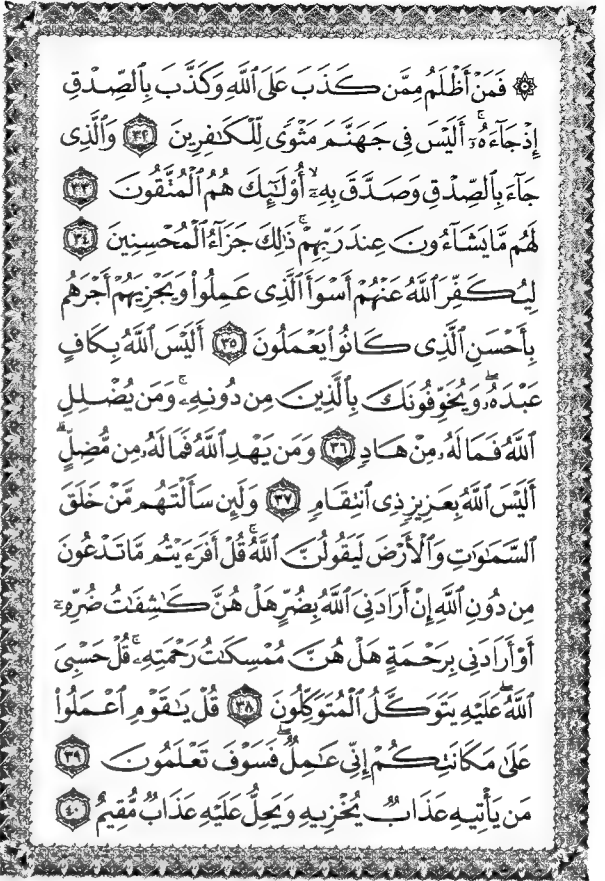 ۞ فَمَنْ أَظْلَمُ مِمَّن كَذَبَ عَلَى ٱللَّهِ وَكَذَّبَ بِٱلصِّدْقِ
إِذْ جَآءَهُۥٓ ۚ أَلَيْسَ فِى جَهَنَّمَ مَثْوًى لِّلْكَٰفِرِينَ ٣٢ وَٱلَّذِى
جَآءَ بِٱلصِّدْقِ وَصَدَّقَ بِهِۦٓ ۙ أُو۟لَٰٓئِكَ هُمُ ٱلْمُتَّقُونَ ٣٣
لَهُم مَّا يَشَآءُونَ عِندَ رَبِّهِمْ ۚ ذَٰلِكَ جَزَآءُ ٱلْمُحْسِنِينَ ٣٤
لِيُكَفِّرَ ٱللَّهُ عَنْهُمْ أَسْوَأَ ٱلَّذِى عَمِلُوا۟ وَيَجْزِيَهُمْ أَجْرَهُم
بِأَحْسَنِ ٱلَّذِى كَانُوا۟ يَعْمَلُونَ ٣٥ أَلَيْسَ ٱللَّهُ بِكَافٍ
عَبْدَهُۥ ۖ وَيُخَوِّفُونَكَ بِٱلَّذِينَ مِن دُونِهِۦ ۚ وَمَن يُضْلِلِ
ٱللَّهُ فَمَا لَهُۥ مِنْ هَادٍ ٣٦ وَمَن يَهْدِ ٱللَّهُ فَمَا لَهُۥ مِن مُّضِلٍّ ۗ
أَلَيْسَ ٱللَّهُ بِعَزِيزٍ ذِى ٱنتِقَامٍ ٣٧ وَلَئِن سَأَلْتَهُم مَّنْ خَلَقَ
ٱلسَّمَٰوَٰتِ وَٱلْأَرْضَ لَيَقُولُنَّ ٱللَّهُ ۚ قُلْ أَفَرَءَيْتُم مَّا تَدْعُونَ
مِن دُونِ ٱللَّهِ إِنْ أَرَادَنِىَ ٱللَّهُ بِضُرٍّ هَلْ هُنَّ كَٰشِفَٰتُ ضُرِّهِۦٓ
أَوْ أَرَادَنِى بِرَحْمَةٍ هَلْ هُنَّ مُمْسِكَٰتُ رَحْمَتِهِۦ ۚ قُلْ حَسْبِىَ
ٱللَّهُ ۖ عَلَيْهِ يَتَوَكَّلُ ٱلْمُتَوَكِّلُونَ ٣٨ قُلْ يَٰقَوْمِ ٱعْمَلُوا۟
عَلَىٰ مَكَانَتِكُمْ إِنِّى عَٰمِلٌ ۖ فَسَوْفَ تَعْلَمُونَ ٣٩
مَن يَأْتِيهِ عَذَابٌ يُخْزِيهِ وَيَحِلُّ عَلَيْهِ عَذَابٌ مُّقِيمٌ ٤٠